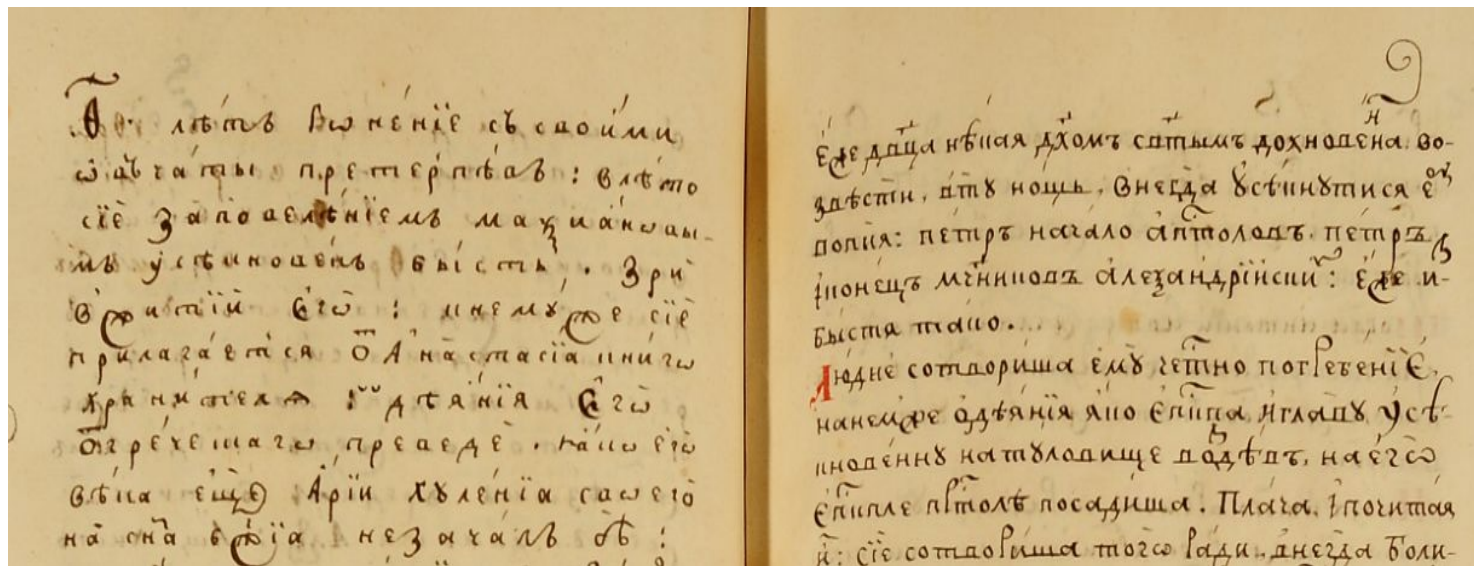 лѣтъ гоненїе съ своими
ѡвчаты претерпѣвъ : влѣто
сїе заповелѣнїемъ маѯиановы-
мъ усѣкновенъ бысть . Зри
вжитїи егѡ : кнемуже сїе
прилагается ѿ Анастасїа книгѡ
хранителя : дѣянїя Егѡ
ѿгречешагѡ преведе . какѡ егѡ
вѣка еще Арїи хуленїа своегѡ
на сн҃а бж҃їа незачалъ бѣ :
еже дв҃ца нѣкая дх҃омъ ст҃ымъ дохновена . во-
звѣсти , вту нощь , внегда ꙋсѣкнутися еꙋ
вопия : петръ начало ап҃толовъ . петръ
їконецъ мч҃нковъ алеѯандрїйски : еже и-
бысть тако .
Людие сотвориша емꙋ чеⷭтно погребенїе ,
нанемже одѣянїя яко еп҃кпа иглавꙋ усѣ-
кновеннꙋ натуловище водѣвъ , наегѡ
еп҃кпле пⷭтолѣ посадиша . Плача , їпочитая
и : сїе сотвориша тогѡ ради , внегда боли-